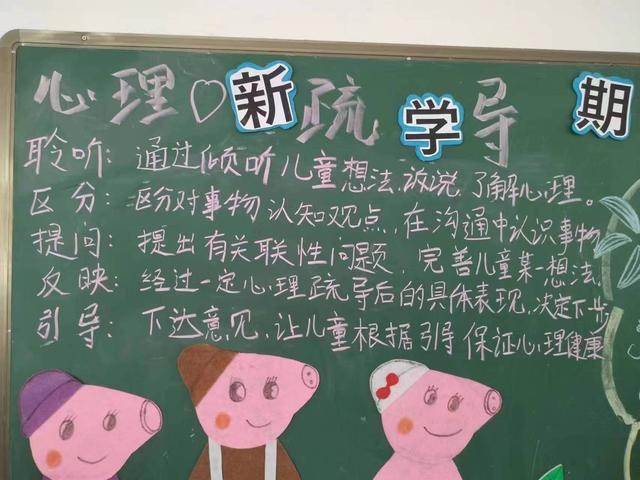 心理♡疏导
新学期
聆听：通过倾听儿童想法，诉说，了解心理。
区分：区分对事物认知观点，在沟通中认识事物
提问：提出有关联性问题，完善儿童某一想法，
反映：经过一定心理疏导后的具体表现，决定下一步
引导：下达意见，让儿童根据引导保证心理健康